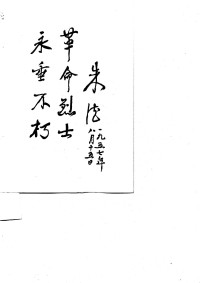 革命烈士
永垂不朽
朱德
一九五七年
八月十五日